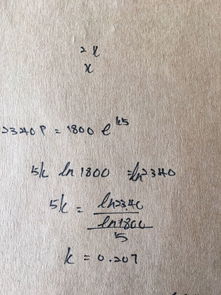 = x
x
2340 P = 1800 e^k5
5k ln 1800 = ln 2340
5k = ln 2340
ln 1800
5
k = 0.207